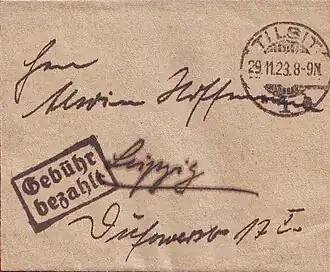 TILSIT
29.11.23.8-9N.
1
Herrn
Hoffmann
Gebühr
bezahlt
Leipzig
17 I.